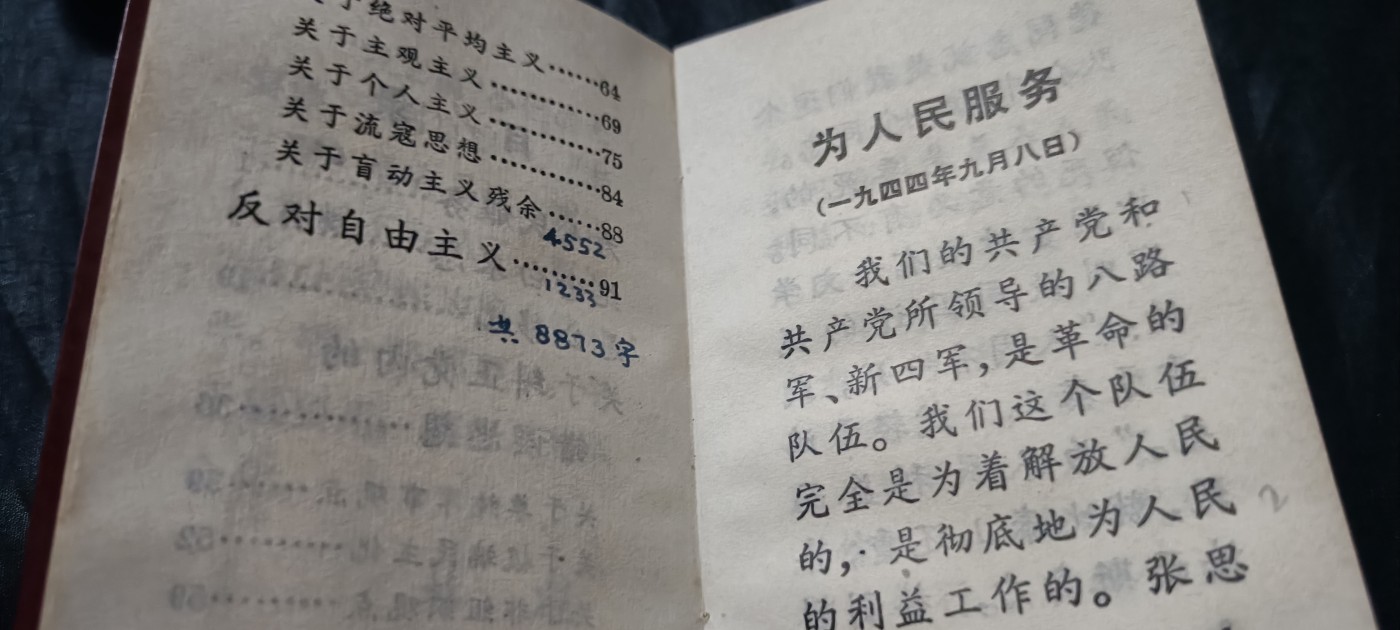 于绝对平均主义……64
关于主观主义…………69
关于个人主义…………75
关于流寇思想…………84
关于盲动主义残余……88
4552
反对自由主义………91
1233
共 8873字
为人民服务
(一九四四年九月八日)
我们的共产党和
共产党所领导的八路
军、新四军,是革命的
队伍。我们这个队伍
完全是为着解放人民
的,是彻底地为人民
的利益工作的。张思
2